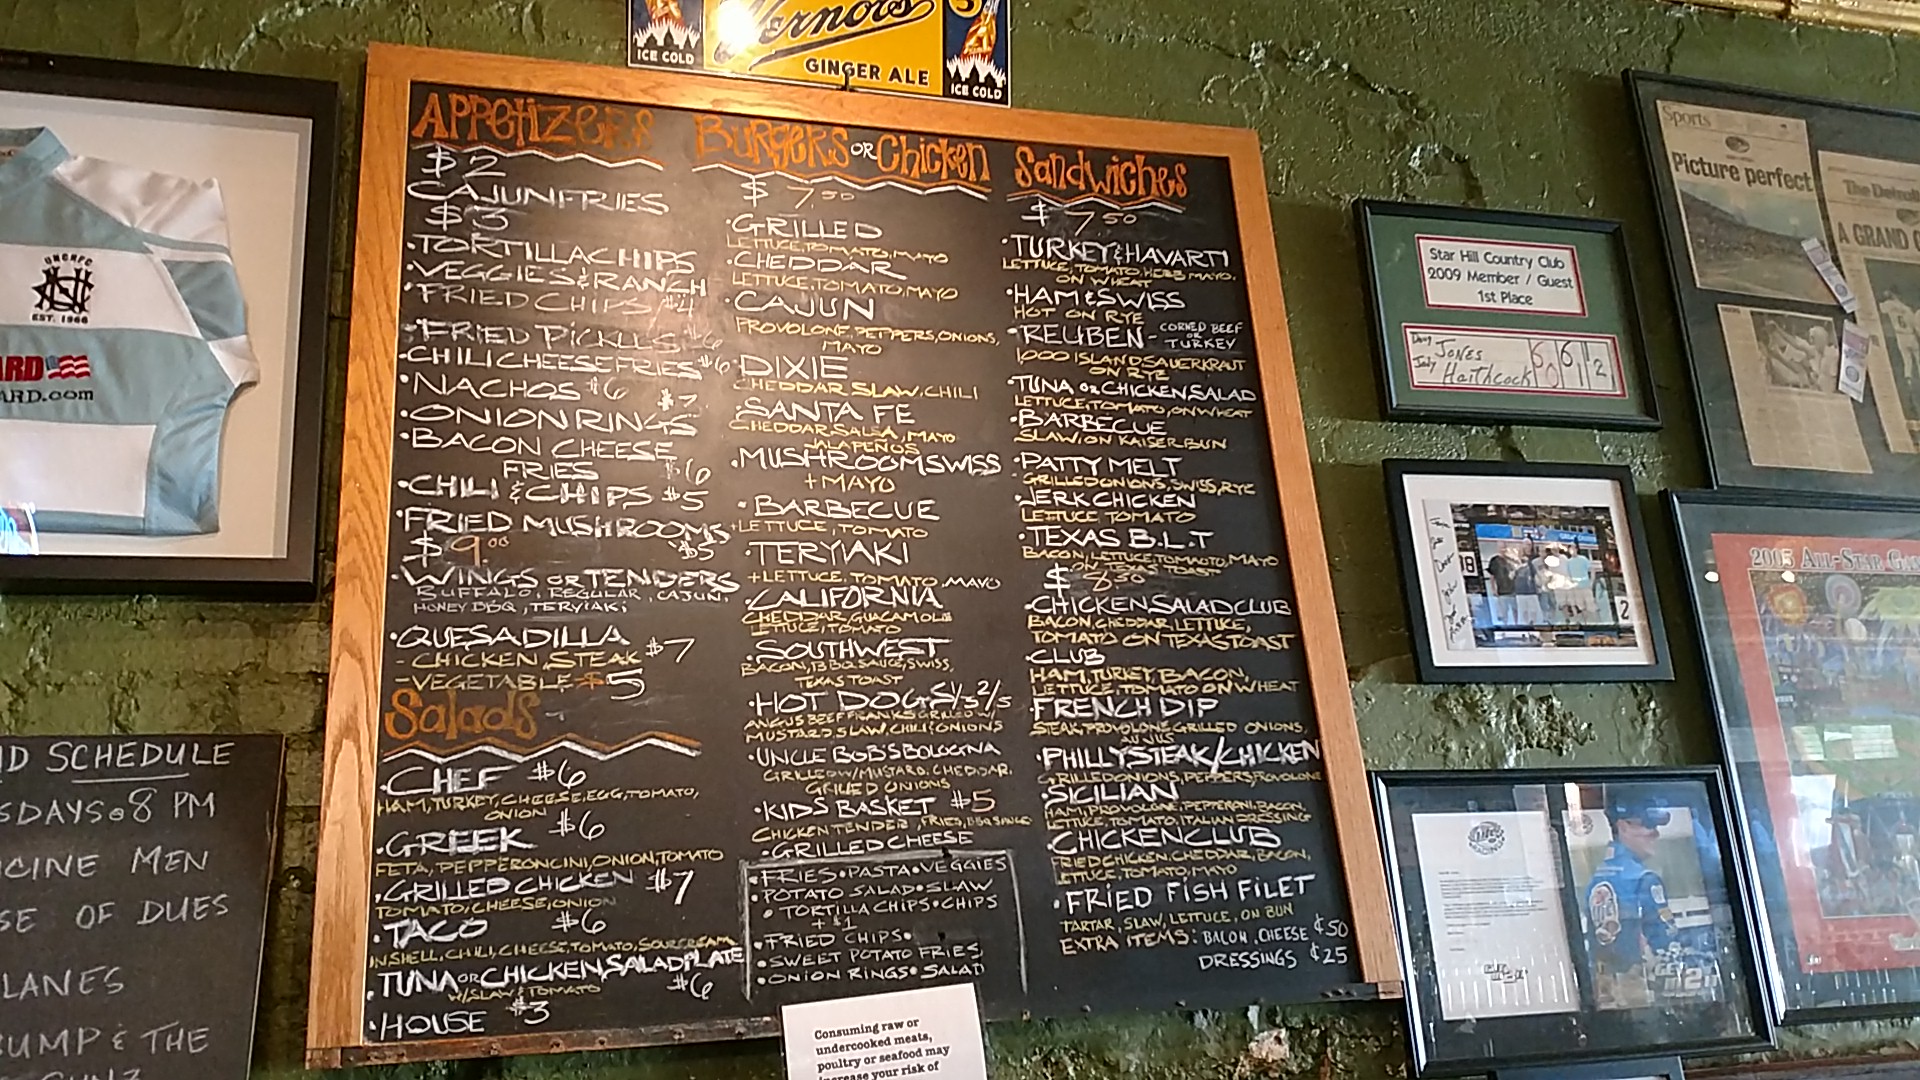 Vernors
GINGER ALE
ICE COLD
ICE COLD
APPETIZERS
$2
CAJUN FRIES
$3
•TORTILLA CHIPS
•VEGGIES & RANCH
•FRIED CHIPS/$4
•FRIED PICKLES $6
•CHILI CHEESE FRIES $6
•NACHOS $6
•ONION RINGS $7
•BACON CHEESE
FRIES $6
•CHILI & CHIPS $5
•FRIED MUSHROOMS
$9.00 $5
•WINGS OR TENDERS
BUFFALO, REGULAR, CAJUN,
HONEY BBQ, TERYIAKI
•QUESADILLA $7
- CHICKEN, STEAK
- VEGETABLE $5
Salads
•CHEF $6
HAM, TURKEY, CHEESE, EGG, TOMATO,
ONION
•GREEK $6
FETA, PEPPERONCINI, ONION, TOMATO
•GRILLED CHICKEN $7
TOMATO, CHEESE, ONION
•TACO $6
IN SHELL, CHILI, CHEESE, TOMATO, SOUR CREAM
•TUNA OR CHICKEN SALAD PLATE
W/SLAW & TOMATO $6
•HOUSE $3
Burgers OR Chicken
$7.50
•GRILLED
LETTUCE, TOMATO, MAYO
•CHEDDAR
LETTUCE, TOMATO, MAYO
•CAJUN
PROVOLONE, PEPPERS, ONIONS,
MAYO
•DIXIE
CHEDDAR, SLAW, CHILI
•SANTA FE
CHEDDAR, SALSA, MAYO
JALAPEÑOS
•MUSHROOM SWISS
+ MAYO
•BARBECUE
+LETTUCE, TOMATO
•TERYIAKI
+LETTUCE, TOMATO, MAYO
•CALIFORNIA
CHEDDAR, GUACAMOLE
LETTUCE, TOMATO
•SOUTHWEST
BACON, BBQ SAUCE, SWISS,
TEXAS TOAST
•HOT DOGS 1/3 2/5
ANGUS BEEF FRANKS GRILLED W/
MUSTARD, SLAW, CHILI & ONIONS
•UNCLE BOB'S BOLOGNA
GRILLED W/MUSTARD, CHEDDAR,
GRILLED ONIONS
•KIDS BASKET $5
CHICKEN TENDER, FRIES, BBQ SAUCE
•GRILLED CHEESE
•FRIES•PASTA•VEGGIES
•POTATO SALAD•SLAW
•TORTILLA CHIPS•CHIPS
+ $1
•FRIED CHIPS•
•SWEET POTATO FRIES
•ONION RINGS•SALAD
Sandwiches
$7.50
•TURKEY & HAVARTI
LETTUCE, TOMATO, HERB MAYO,
ON WHEAT
•HAM & SWISS
HOT ON RYE
•REUBEN - CORNED BEEF
OR
TURKEY
1,000 ISLAND SAUERKRAUT
ON RYE
•TUNA OR CHICKEN SALAD
LETTUCE, TOMATO, ON WHEAT
•BARBECUE
SLAW, ON KAISER BUN
•PATTY MELT
GRILLED ONIONS, SWISS, RYE
•JERK CHICKEN
LETTUCE TOMATO
•TEXAS B.L.T
BACON, LETTUCE, TOMOATO, MAYO
ON TEXAS TOAST
$8.50
•CHICKEN SALAD CLUB
BACON, CHEDDAR, LETTUCE,
TOMATO ON TEXAS TOAST
•CLUB
HAM, TURKEY, BACON,
LETTUCE, TOMATO ON WHEAT
•FRENCH DIP
STEAK, PROVOLONE, GRILLED ONIONS,
•PHILLY STEAK/CHICKEN
GRILLED ONIONS, PEPPERS, PROVOLONE
•SICILIAN
HAM, PROVOLONE, PEPPERONI, BACON,
LETTUCE, TOMATO, ITALIAN DRESSING
•CHICKEN CLUB
FRIED CHICKEN, CHEDDAR, BACON,
LETTUCE, TOMATO, MAYO
•FRIED FISH FILET
TARTAR, SLAW, LETTUCE, ON BUN
EXTRA ITEMS: BACON, CHEESE ¢50
DRESSINGS ¢25
Consuming raw or
undercooked meats,
poultry or seafood may
increase your risk of
UNCRFC
EST. 1966
ARD
ARD.com
ND SCHEDULE
SDAYS @ 8 PM
ICINE MEN
SE OF DUES
LANES
BUMP & THE
Star Hill Country Club
2009 Member / Guest
1st Place
Doug
JONES
Judy Haithcock
Sports
Picture perfect
The Detroit
A GRAND
2005 ALL-STAR GA